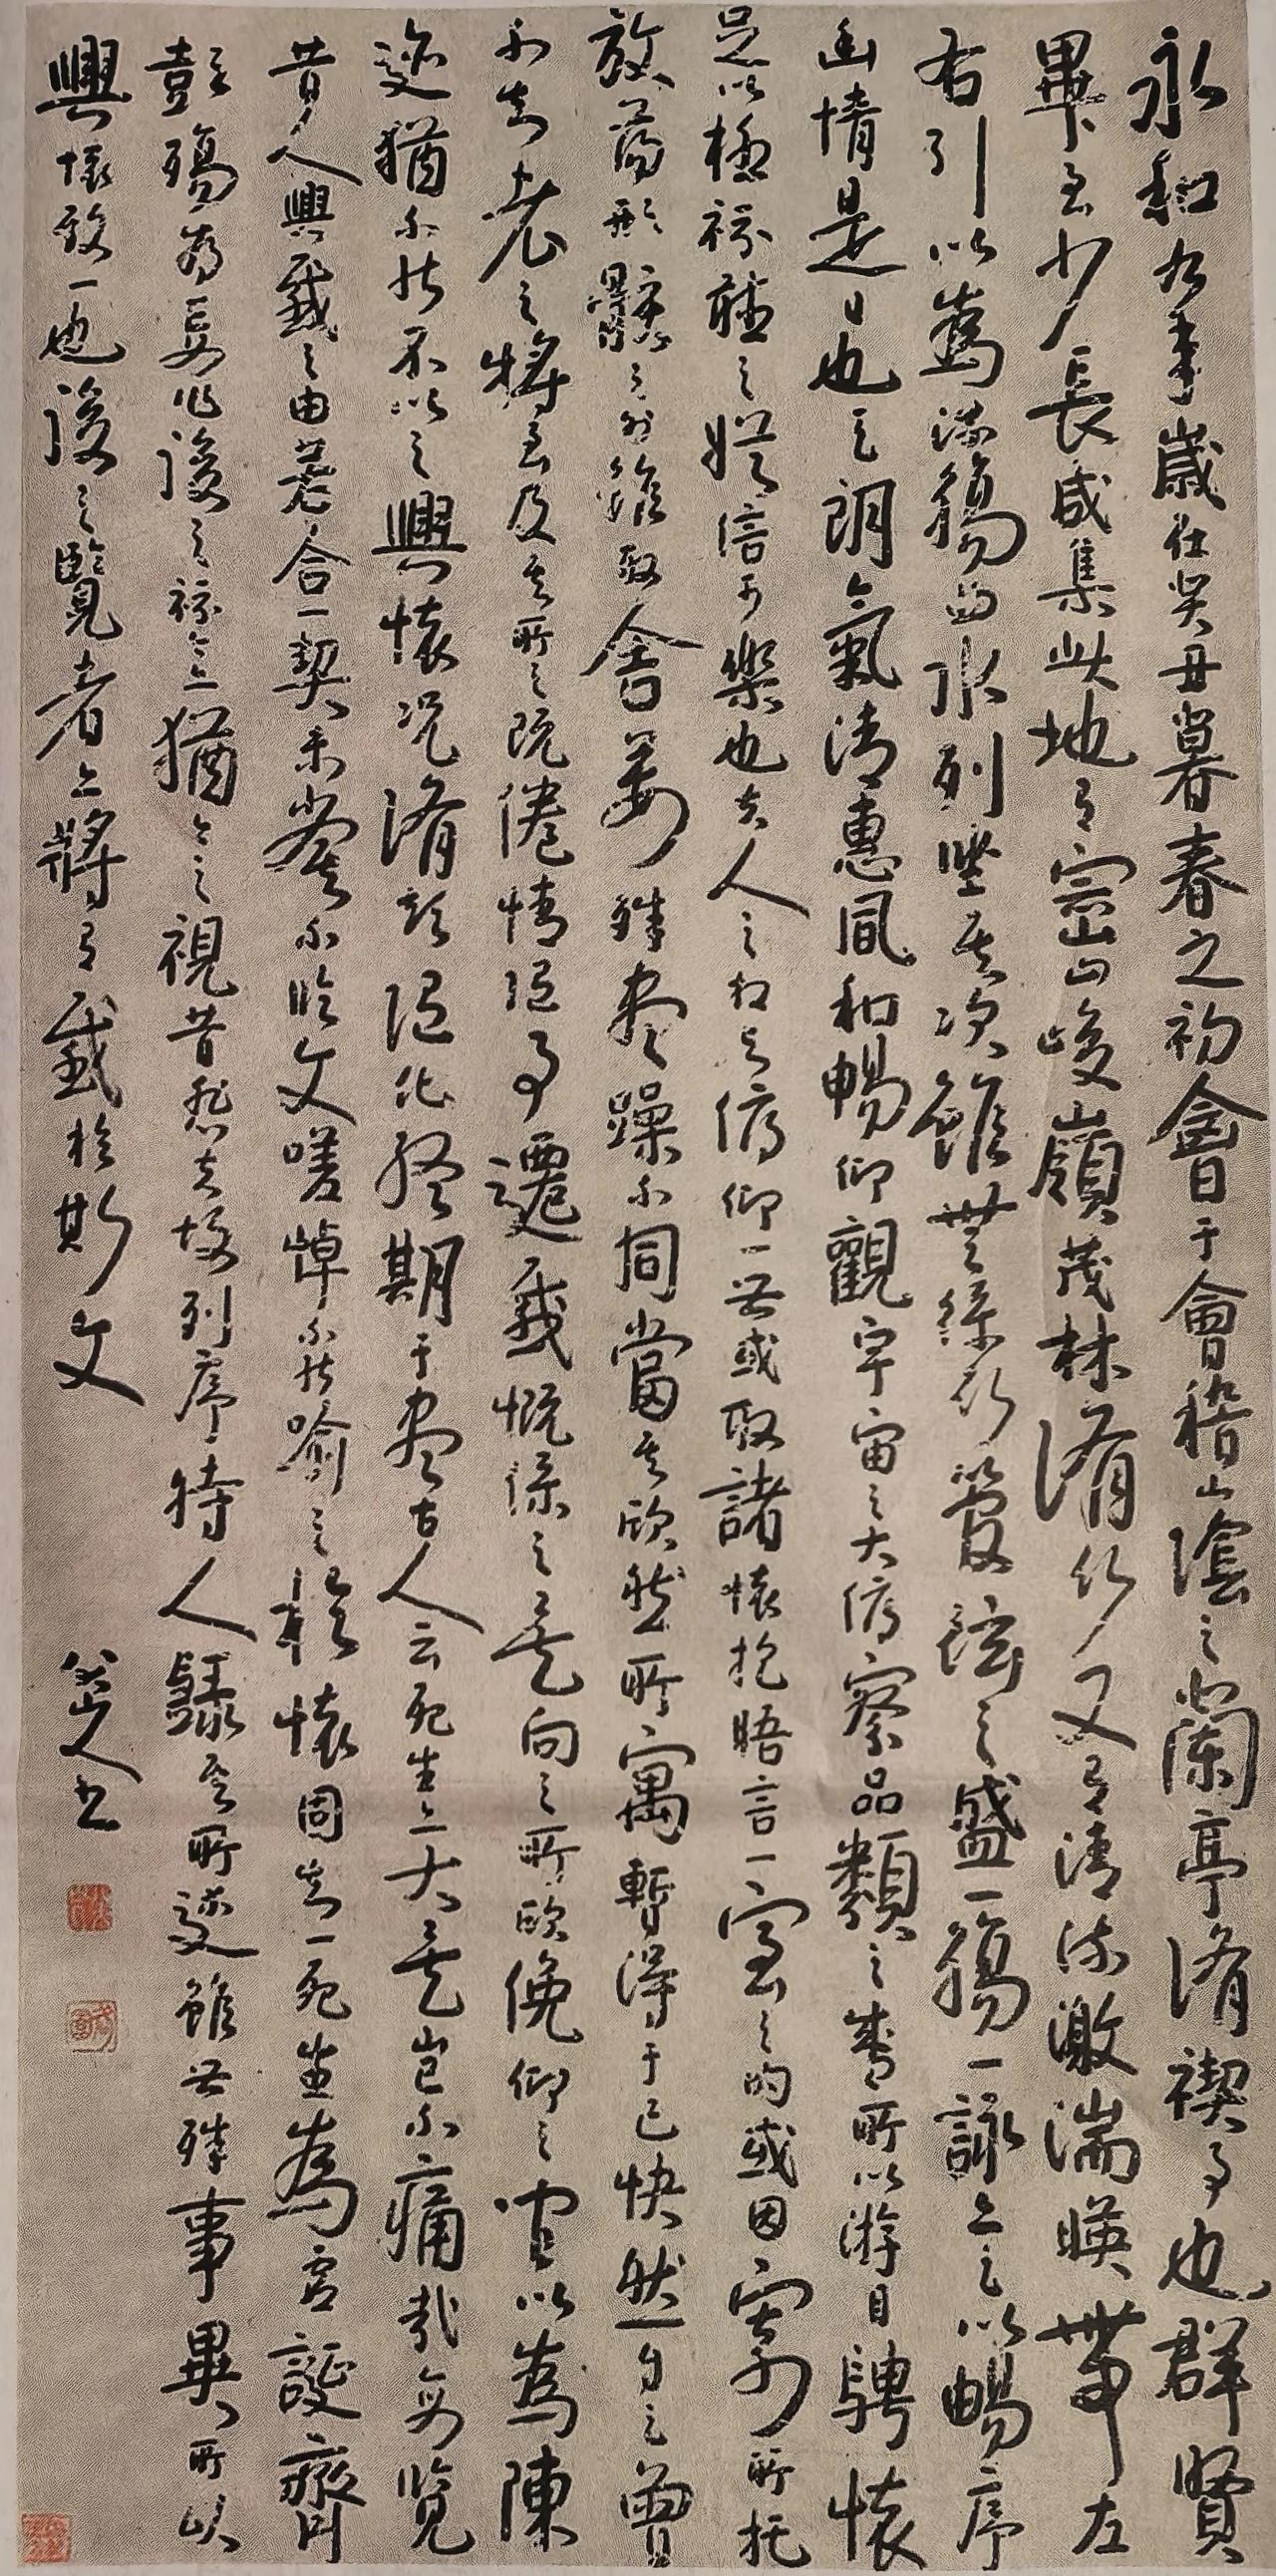 永和九年歲在癸丑暮春之初會于會稽山陰之蘭亭脩禊事也群賢
畢至少長咸集此地有崇山峻嶺茂林脩竹又有清流激湍暎帶左
右引以為流觴曲水列坐其次雖無絲竹管弦之盛一觴一詠亦足以暢序
幽情是日也天朗氣清惠風和暢仰觀宇宙之大俯察品類之盛所以游目騁懷
足以極視聽之娛信可樂也夫人之相與俯仰一世或取諸懷抱晤言一室之内或因寄所托
放蕩形骸之外雖取舍萬殊靜躁不同當其欣然所寓暫得于己快然自足曾
不知老之將至及其所之既倦情隨事遷感慨係之矣向之所欣俛仰之間以為陳
迹猶不能不以之興懷況脩短隨化終期于盡古人云死生亦大矣豈不痛哉每覽
昔人興感之由若合一契未嘗不臨文嗟悼不能喻之於懷固知一死生為虛誕齊
彭殤為妄作後之視今亦猶今之視昔悲夫故列序時人錄其所述雖世殊事異所以
興懷致一也後之覽者亦將有感於斯文
八大山人書